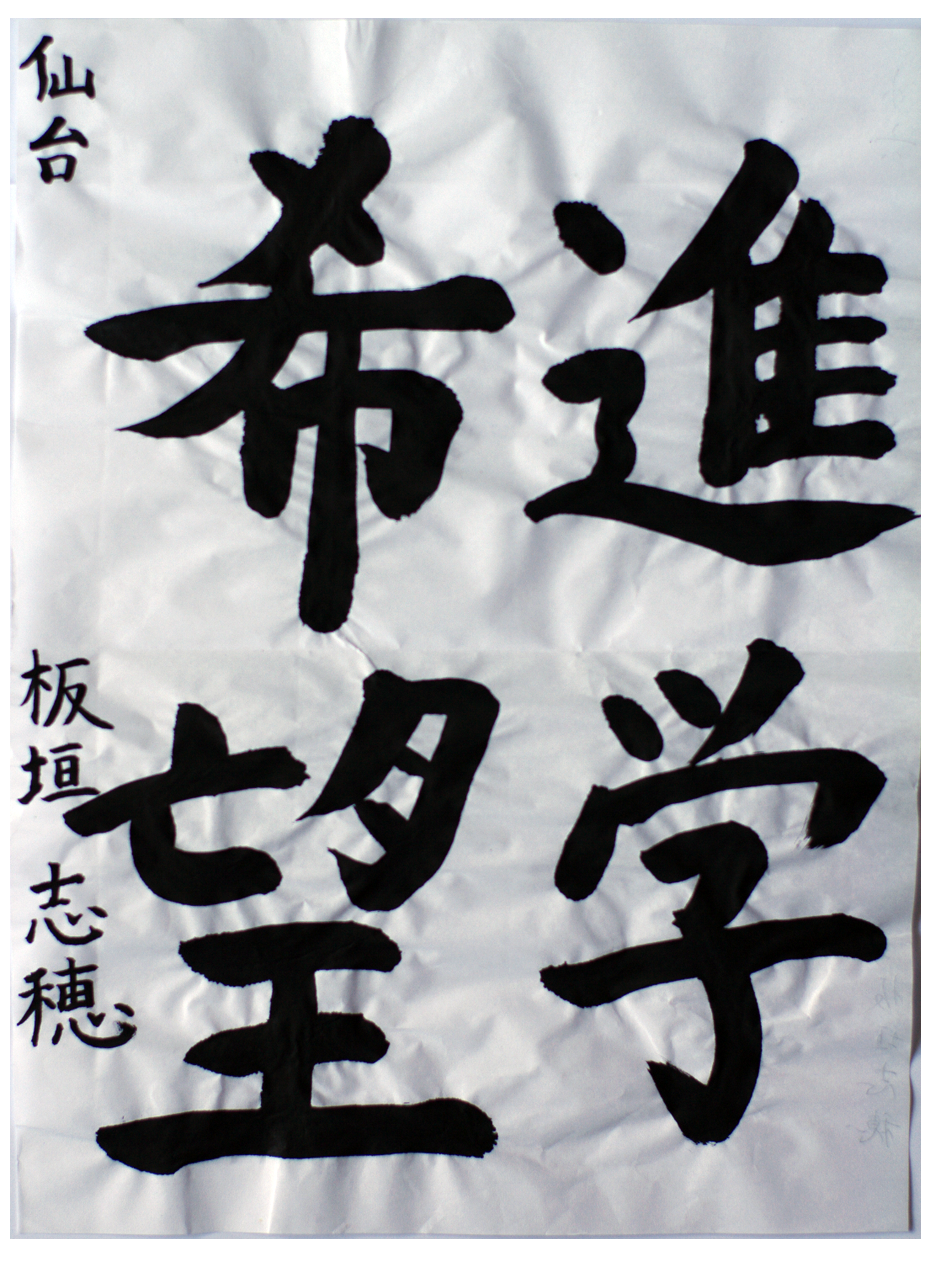 進学
希望
仙台
板垣志穂